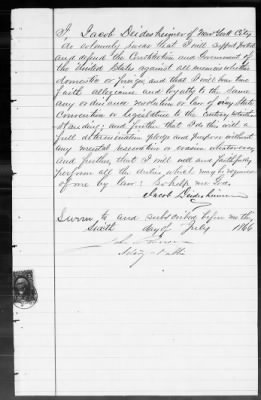 I Jacob Deidesheimer of New York City
do solemnly swear that I will support, protect
and defend the Constitution and Government of
the United States against all enemies whether
domestic or foreign and that I will bear true
faith allegiance and loyalty to the same
any ordinance resolution or law of any State
Convention or Legislature to the contrary
Standing; and further that I do this with a
full determination pledge and purpose without
any mental reservation or evasion whatsoever
and further, that I will well and faithfully
perform all the duties which may be required
of me by law: So help me God.
Jacob Deidesheimer
Sworn to and subscribed before me this
Sixth day of July 1866